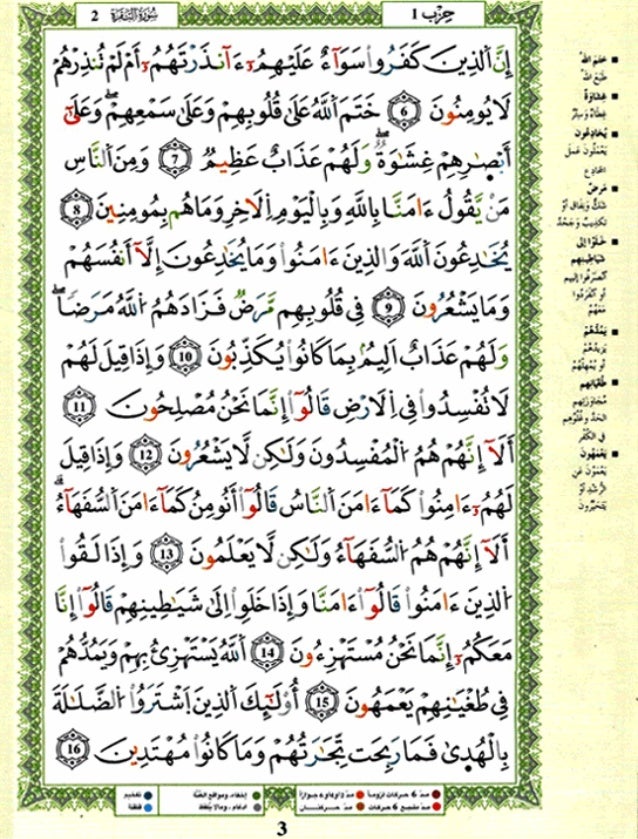 سُورَةُ الْبَقَرَةِ 2
حِزْب 1
إِنَّ اَ۬لذِينَ كَفَرُواْ سَوَآءٌ عَلَيْهِمُۥٓ ءَآنذَرْتَهُمُۥٓ أَمْ لَمْ تُنذِرْهُمْ
لَا يُومِنُونَ 6 خَتَمَ اَ۬للَّهُ عَلَىٰ قُلُوبِهِمْ وَعَلَىٰ سَمْعِهِمْۖ وَعَلَىٰٓ
أَبْصٰ۪رِهِمْ غِشَٰوَةٞۖ وَلَهُمْ عَذَابٌ عَظِيمٞ 7 وَمِنَ اَ۬لنَّاسِ
مَنْ يَّقُولُ ءَامَنَّا بِاللَّهِ وَبِالْيَوْمِ اِ۬لَاخِرِ وَمَا هُم بِمُومِنِينَ 8
يُخَٰدِعُونَ اَ۬للَّهَ وَالذِينَ ءَامَنُواْ وَمَا يُخَٰدِعُونَ إِلَّآ أَنفُسَهُمْ
وَمَا يَشْعُرُونَ 9 فِى قُلُوبِهِم مَّرَضٞ فَزَادَهُمُ اُ۬للَّهُ مَرَضاٗۖ
وَلَهُمْ عَذَابٌ اَلِيمُۢ بِمَا كَانُواْ يُكَذِّبُونَ 10 وَإِذَا قِيلَ لَهُمْ
لَا تُفْسِدُواْ فِى اِ۬لَارْضِ قَالُوٓاْ إِنَّمَا نَحْنُ مُصْلِحُونَ 11
أَلَآ إِنَّهُمْ هُمُ اُ۬لْمُفْسِدُونَ وَلَٰكِن لَّا يَشْعُرُونَ 12 وَإِذَا قِيلَ
لَهُمُۥٓ ءَامِنُواْ كَمَآ ءَامَنَ اَ۬لنَّاسُ قَالُوٓاْ أَنُومِنُ كَمَآ ءَامَنَ اَ۬لسُّفَهَآءُۖ
أَلَآ إِنَّهُمْ هُمُ اُ۬لسُّفَهَآءُ وَلَٰكِن لَّا يَعْلَمُونَ 13 وَإِذَا لَقُواْ
اُ۬لذِينَ ءَامَنُواْ قَالُوٓاْ ءَامَنَّا وَإِذَا خَلَوِاْ اِلَىٰ شَيَٰطِينِهِمْ قَالُوٓاْ إِنَّا
مَعَكُمُۥٓ إِنَّمَا نَحْنُ مُسْتَهْزِءُونَ 14 اَ۬للَّهُ يَسْتَهْزِئُ بِهِمْ وَيَمُدُّهُمْ
فِى طُغْيَٰنِهِمْ يَعْمَهُونَ 15 أُوْلَٰٓئِكَ اَ۬لذِينَ اَ۪شْتَرَوُاْ اُ۬لضَّلَٰلَةَ
بِالْهُد۪ىٰ فَمَا رَبِحَت تِّجَٰرَتُهُمْ وَمَا كَانُواْ مُهْتَدِينَ 16
خَتَمَ اللهُ
طَبَعَ اللهُ
غِشَاوَةٌ
غِطَاءٌ وَسِتْرٌ
يُخَادِعُونَ
يَعْمَلُونَ عَمَلَ
المُخَادِعِ
مَرَضٌ
شَكٌّ وَنِفَاقٌ أَوْ
تَكْذِيبٌ وَجَحْدٌ
خَلَوْا إِلَى
شَيَاطِينِهِم
انْصَرَفُوا إِلَيْهِم
أَوِ انْفَرَدُوا
مَعَهُمْ
يَمُدُّهُمْ
يَزِيدُهُمْ
أَوْ يُمْهِلُهُمْ
طُغْيَانِهِم
مُجَاوَزَتِهِم
الحَدَّ وَغُلُوِّهِم
فِي الكُفْرِ
يَعْمَهُونَ
يَعْمَوْنَ عَنِ
الرُّشْدِ أَوْ
يَتَحَيَّرُونَ
مدّ 6 حركات لزوماً
مدّ 2 أو 4 أو 6 جوازاً
إخفاء، ومواقع الغنّة
تفخيم
مدّ مشبع 6 حركات
مدّ حركتان
ادغام، وما لا يلفظ
قلقلة
3